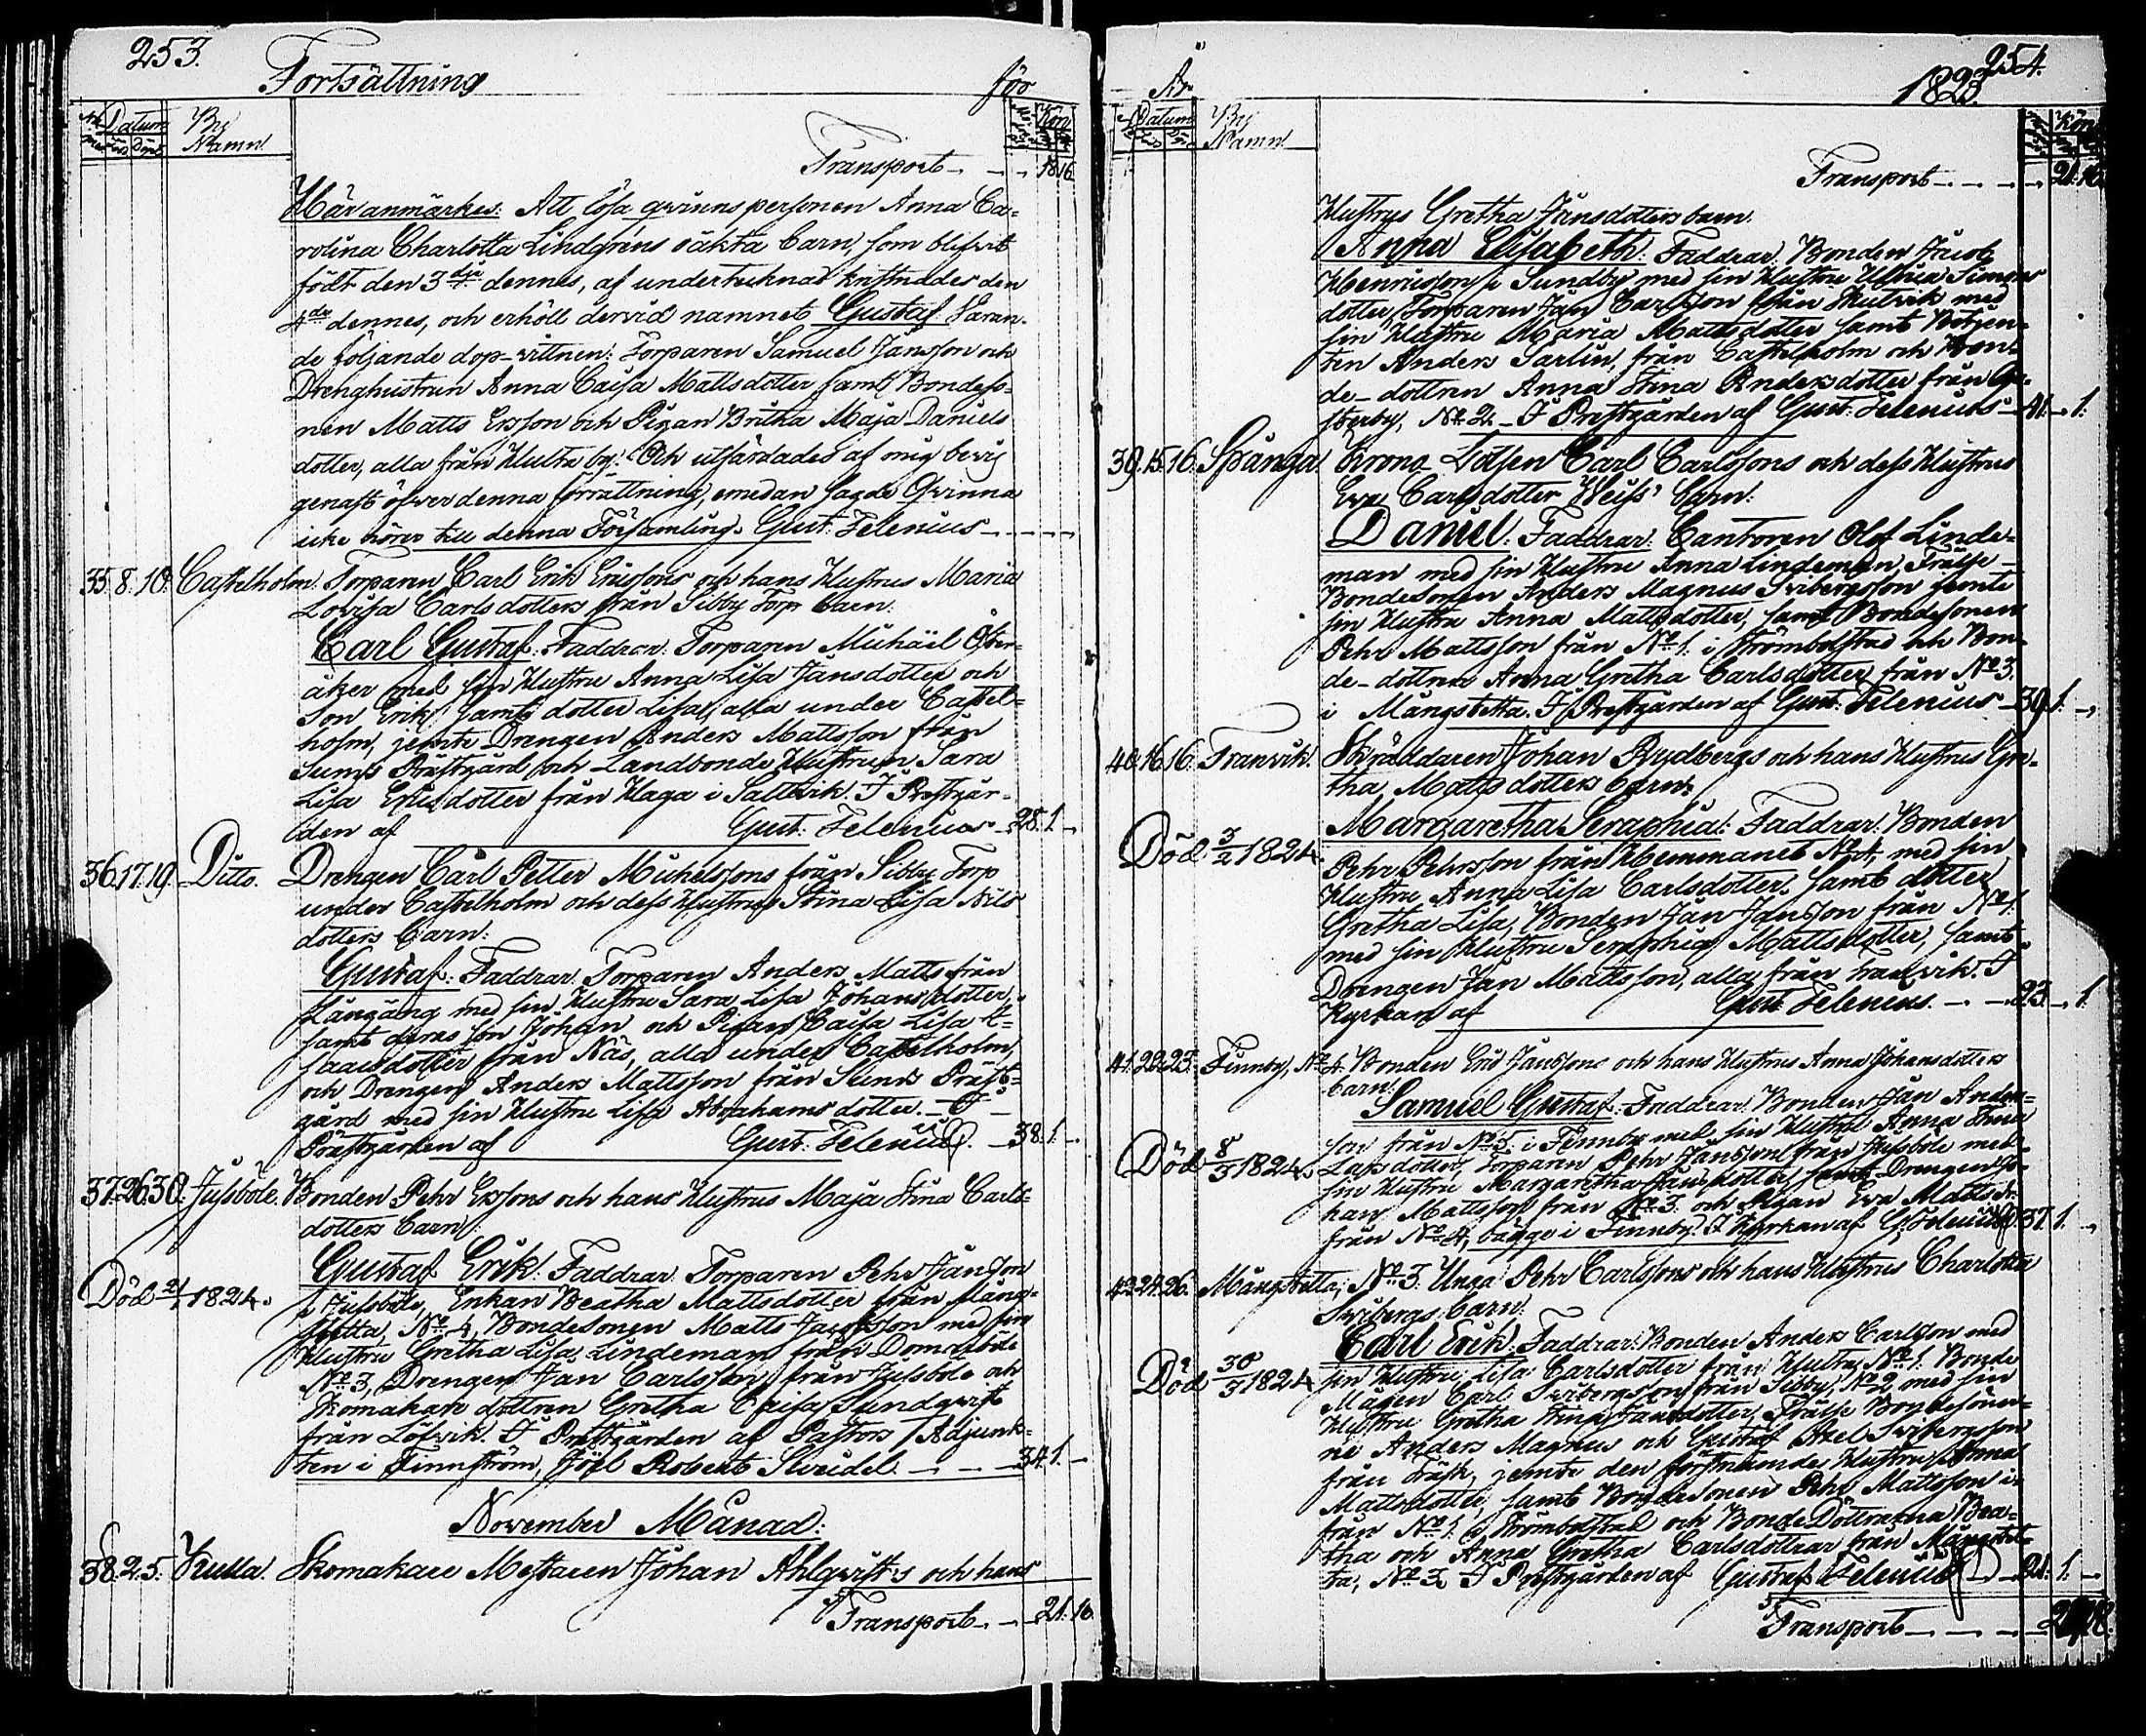 253.
Fortsättning för
Datum By Namn Kön
Transport 18.16
Här anmärkes: Att lösa qwinnspersonen Anna Ca-
rolina Charlotta Lindgréns oäkta barn, som blifvit
födt den 3dje dennes, af undertecknad kristnades den
4de dennes, och erhöll dervid namnet Gustaf. Varan-
de följande dop-vittnen: Torparen Samuel Jansson och
Drenghustrun Anna Caisa Mattsdotter samt Bondeso-
nen Matts Ersson och Pigan Britha Maja Daniels
dotter, alla från Hulta by. Och utfärdades af mig bevis
genast öfver denna förrättning, emedan sagde Qwinna
icke hörer till denna Församling. Gust: Felenius
35. 8. 10. Castelholm. Torparen Carl Erik Ericssons och hans Hustrus Maria
Lovisa Carlsdotters från Sibby Torp barn.
Carl Gustaf. Faddrar. Torparen Michäel Öfver-
åker med sin Hustru Anna Lisa Jansdotter och
Son Erik samt dotter Lisa, alla under Castel-
holm, jemte Drengen Anders Mattsson från
Sunds Prästgård och Landbonde Hustrun Sara
Lisa Ericsdotter från Haga i Saltvik. I Prestgår-
den af Gust: Felenius 28. 1.
36. 17. 19. Ditto. Drengen Carl Petter Michelssons från Sibby Torp
under Castelholm och dess Hustrus Stina Lisa Nils
dotters barn:
Gustaf: Faddrar. Torparen Anders Matts från
Långäng med sin Hustru Sara Lisa Johansdotter,
samt deras son Johan och Pigan Caisa Lisa I-
saacsdotter från Näs, alla under Castelholm,
och Drengen Anders Mattsson från Sunds Präst-
gård med sin Hustru Lisa Abrahams dotter. I
Prästgården af Gust: Felenius. 38. 1.
37. 26. 30. Jussböle. Bonden Pehr Erssons och hans Hustrus Maja Stina Carls-
dotters barn.
Gustaf Erik: Faddrar. Torparen Pehr Jansson
Död 1824.
i Jussböle, Enkan Beatha Mattsdotter från Mång-
stetta, No 4, Bondesonen Matts Jacobsson med sin
Hustru Gretha Lisa Lindeman från Domarböle
No 3, Drengen Jan Carlsson från Jussböle och
Skomakare dottren Gretha Caisa Sundqwist
från Löfvik. I Prestgården af Pastors Adjunk-
ten i Finnström, Joel Robert Sweidel 34. 1.
November Månad:
38. 2. 5. Kulla. Skomakare Mestaren Johan Ahlqwists och hans
Transport 21. 16.
År 1823. 254.
Datum By Namn Kön
Transport 21. 16
Hustrus Gretha Jansdotters barn.
Anna Elisabeth. Faddrar. Bonden Jacob
Henricsson i Sundby med sin Hustru Ulrica Simons
dotter, Torparen Jan Carlsson från Skutvik med
sin Hustru Maria Mattsdotter samt Båtsen-
ten Anders Sarlin, från Castelholm och Bon-
de-dottren Anna Stina Andersdotter från
sterby, No 2. I Prestgården af Gust: Felenius 41. 1.
39. 15. 16. Spånga. Krono Lotsen Carl Carlssons och dess Hustrus
Eva Carlsdotter Weiss' barn:
Daniel. Faddrar. Cantoren Olof Linde-
man med sin Hustru Anna Lindeman, Frälse-
Bondesonen Anders Magnus Svibergsson jemte
sin Hustru Anna Mattsdotter, samt Bondesonen
Pehr Mattsson från No 1. i Strömbolstad och Bon-
de-dottren Anna Gretha Carlsdotter från No 3.
i Mångstetta. I Prestgården af Gust: Felenius 39. 1.
40. 16. 16. Tranvik. Skräddaren Johan Rydbergs och hans Hustrus Gre-
tha Mattsdotters barn:
Margaretha Seraphia: Faddrar: Bonden
Död 3/2 1824.
Pehr Pehrsson från Hemmanet No 4, med sin
Hustru Anna Lisa Carlsdotter, samt dotter
Gretha Lisa, Bonden Jan Jansson från No 1.
med sin Hustru Seraphia Mattsdotter, samt
Drengen Jan Mattsson, alla från Tranvik. I
Kyrkan af Gust: Felenius. 23. 1.
41. 22. 23. Finnby, No 4. Bonden Eric Janssons och hans Hustrus Anna Johansdotters
barn:
Samuel Gustaf. Faddrar. Bonden Jan Anders-
son från No 3. i Finnby med sin Hustru Anna Stina
Död 8/3 1824.
Larsdotter, Torparen Pehr Jansson från Jussböle med
sin Hustru Margaretha Jansdotter, samt Drengen Jo-
han Mattsson från No 3. och Pigan Eva Matts dr.
från No 4, bägge i Finnby. I Kyrkan af G. Felenius. 37. 1.
42. 24. 26. Mångstetta, No 3. Unga Pehr Carlssons och hans Hustrus Charlotta
Svibergs barn:
Carl Erik. Faddrar: Bonden Anders Carlsson med
Död 30/3 1824.
sin Hustru Lisa Carlsdotter från Hulta, No 1. Bonde
Mågen Carl Svibergsson från Sibby, No 2 med sin
Hustru Gretha Stina Jansdotter, Frälse Bondesöner-
ne Anders Magnus och Gustaf Axel Svibergsson
från Träsk, jemte den förstnämnde Hustru Anna
Mattsdotter, samt Bondesonen Pehr Mattsson i-
från No 1. i Strömbolstad och Bonde Döttrarna Bea-
tha och Anna Gretha Carlsdöttrar från Mångstet-
ta, No 3. I Prestgården af Gustaf Felenius 21. 1.
Transport